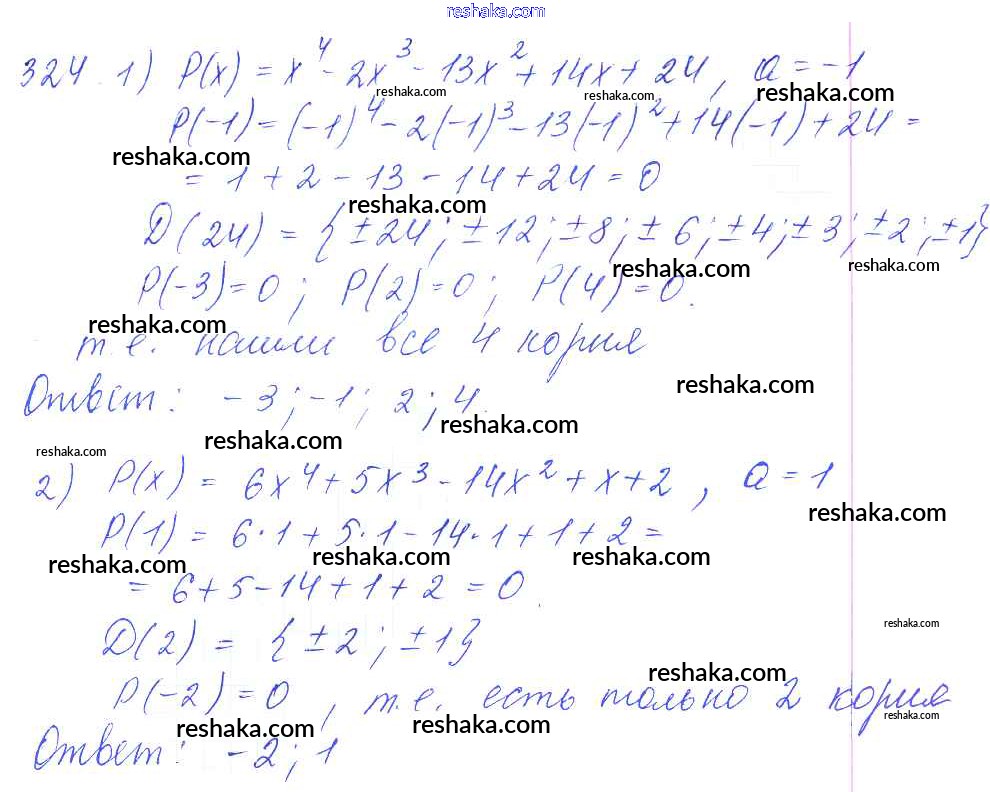 reshaka.com
324. 1) P(x) = x⁴ - 2x³ - 13x² + 14x + 24, a = -1
reshaka.com reshaka.com reshaka.com
P(-1) = (-1)⁴ - 2(-1)³ - 13(-1)² + 14(-1) + 24 =
reshaka.com
= 1 + 2 - 13 - 14 + 24 = 0
reshaka.com
D(24) = {±24; ±12; ±8; ±6; ±4; ±3; ±2; ±1}
reshaka.com reshaka.com
P(-3) = 0; P(2) = 0; P(4) = 0.
reshaka.com
т.е. нашли все 4 корня
reshaka.com
Ответ: -3; -1; 2; 4.
reshaka.com reshaka.com
reshaka.com
2) P(x) = 6x⁴ + 5x³ - 14x² + x + 2, a = 1
reshaka.com
P(1) = 6·1 + 5·1 - 14·1 + 1 + 2 =
reshaka.com reshaka.com reshaka.com
= 6 + 5 - 14 + 1 + 2 = 0.
reshaka.com
D(2) = {±2; ±1}
reshaka.com
P(-2) = 0, т.е. есть только 2 корня
reshaka.com reshaka.com reshaka.com
Ответ: -2; 1